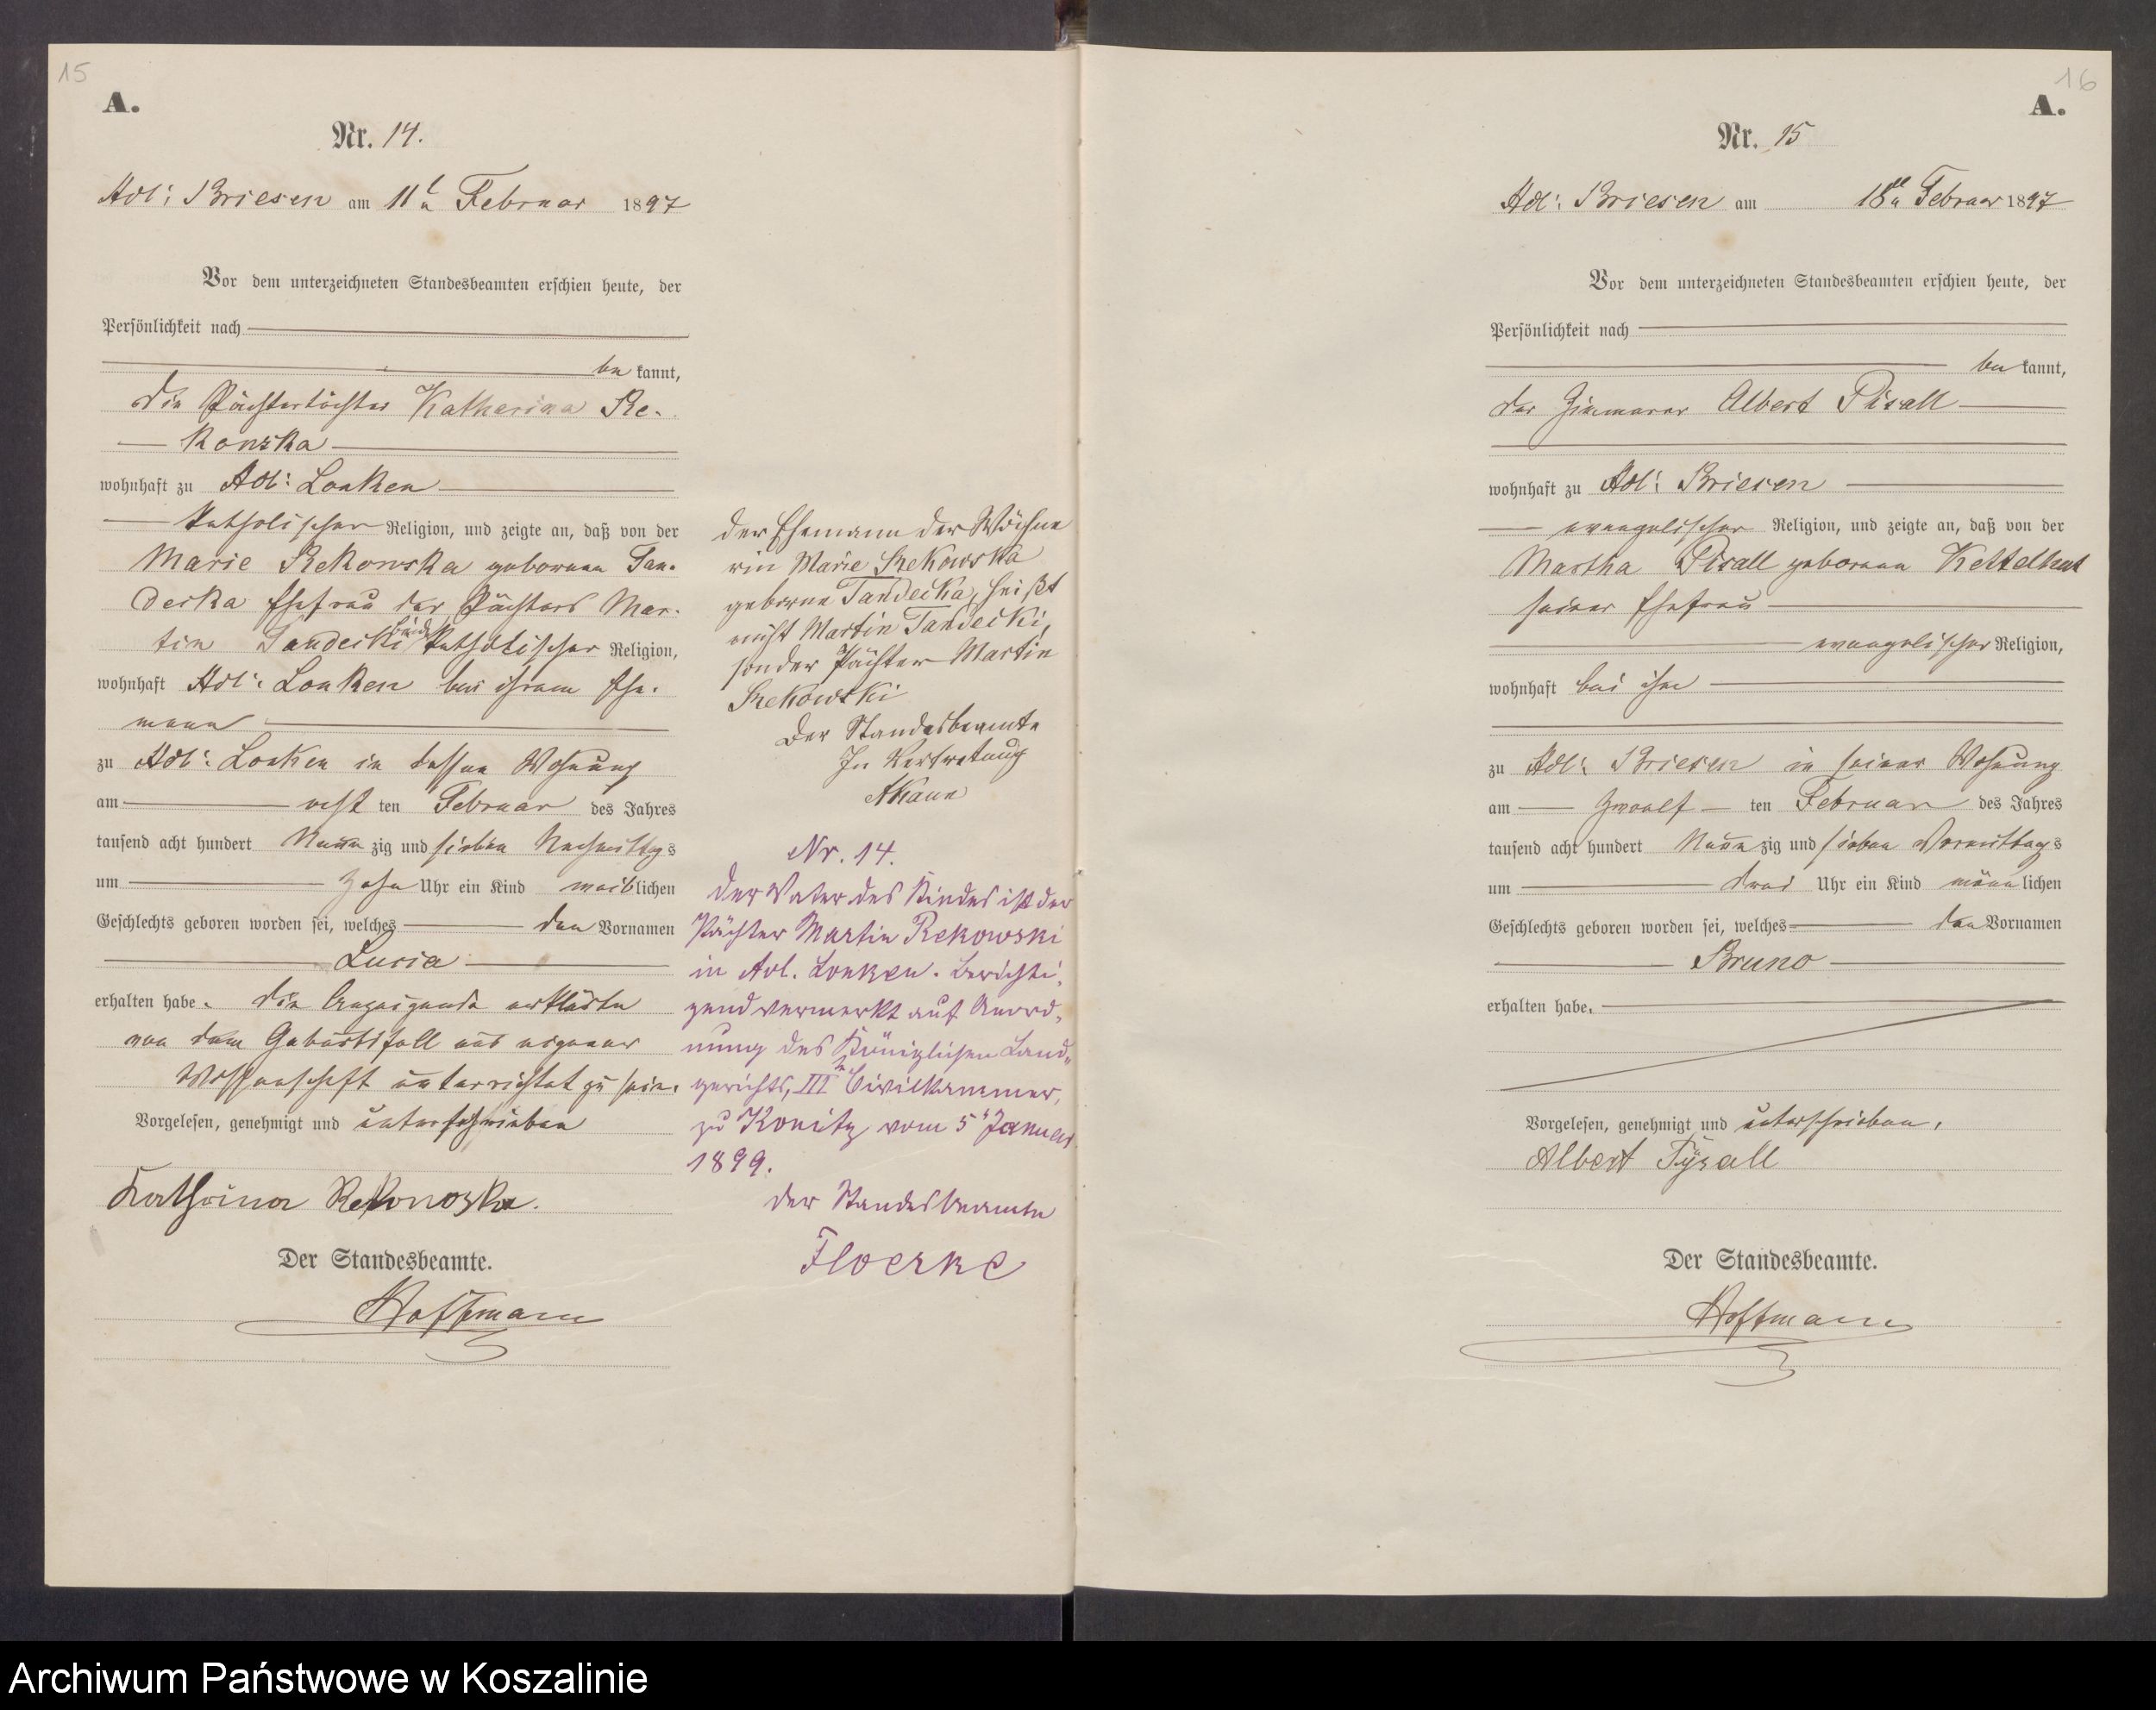 15
A.
Nr. 14.
Adl: Briesen am 11t Februar 1897
Vor dem unterzeichneten Standesbeamten erschien heute, der
Persönlichkeit nach
be kannt,
die Pächtertochter Katharina Re-
konska
wohnhaft zu Adl: Lonken
katholischer Religion, und zeigte an, daß von der
Marie Rekowska geborenen Tan-
decka Ehefrau des Pächters Mar-
tin Tandecki beide katholischer Religion,
wohnhaft Adl: Lonken bei ihrem Ehe-
mann
zu Adl: Lonken in dessen Wohnung
am acht ten Februar des Jahres
tausend acht hundert Neun zig und sieben Nachmittags
um zehn Uhr ein Kind weiblichen
Geschlechts geboren worden sei, welches den Vornamen
Lucia
erhalten habe. Die Anzeigende erklärte
von dem Geburtsfall aus eigener
Wissenschaft unterrichtet zu sein.
Vorgelesen, genehmigt und unterschrieben
Katharina Rekonozka.
Der Standesbeamte.
Hoffmann
der Ehemann der Wöchne
rin Marie Rekowska
geborne Tandecka, heißt
nicht Martin Tandecki,
sonder Pächter Martin
Rekowski
Der Standesbeamte
In Vertretung
Nr. 14.
Der Vater des Kindes ist der
Pächter Martin Rekowski
in Adl. Lonken. Berichti-
gend vermerkt auf Anord-
nung des Königlichen Land-
gerichts, III Civilkammer,
zu Konitz vom 5t Januar
1899.
Der Standesbeamte
Floerke
16
A.
Nr. 15
Adl: Briesen am 18t Februar 1897
Vor dem unterzeichneten Standesbeamten erschien heute, der
Persönlichkeit nach
be kannt,
der Zimmerer Albert Püsall
wohnhaft zu Adl: Briesen
evangelischer Religion, und zeigte an, daß von der
Martha Püsall geborenen Kettelhut
seiner Ehefrau
evangelischer Religion,
wohnhaft bei ihm
zu Adl: Briesen in seiner Wohnung
am Zwoelf ten Februar des Jahres
tausend acht hundert Neun zig und sieben Vormittags
um drei Uhr ein Kind männ lichen
Geschlechts geboren worden sei, welches den Vornamen
Bruno
erhalten habe.
Vorgelesen, genehmigt und unterschrieben.
Albert Püsall
Der Standesbeamte.
Hoffmann
Archiwum Państwowe w Koszalinie